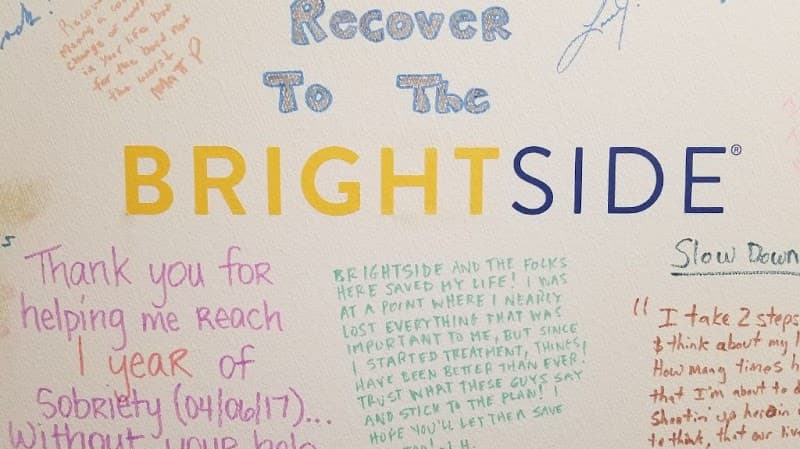 Recover
To The
BRIGHTSIDE®
means a co
change of
in your life but
for the best not
the worst
MATT P
Thank you for
helping me Reach
1 year of
Sobriety (04/06/17)...
Without your help
BRIGHTSIDE AND THE FOLKS
HERE SAVED MY LIFE! I WAS
AT A POINT WHERE I NEARLY
LOST EVERYTHING THAT WAS
IMPORTANT TO ME, BUT SINCE
I STARTED TREATMENT, THINGS
HAVE BEEN BETTER THAN EVER!
TRUST WHAT THESE GUYS SAY
AND STICK TO THE PLAN! I
HOPE YOU'LL LET THEM SAVE
Slow Down
"I take 2 steps
& think about my l
How many times h
that I'm about to d
shootin' up heroin
to think, that our liv